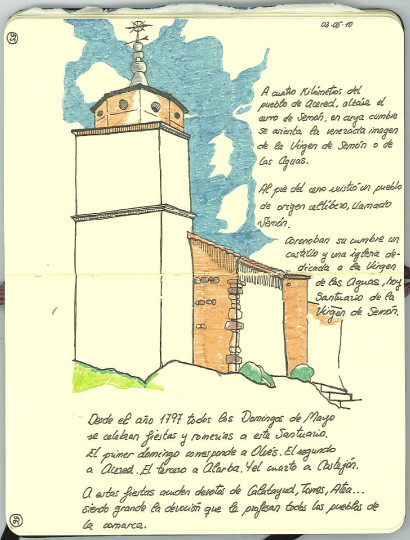 95
03-05-10
A cuatro Kilómetros del
pueblo de Acered, álzase el
cerro de Semón, en cuya cumbre
se asienta la venerada imagen
de la Virgen de Semón o de
las Aguas.
Al pie del cerro existió un pueblo
de origen celtíbero, llamado
Semón.
Coronaban su cumbre un
castillo y una iglesia de-
dicada a la Virgen
de las Aguas, hoy
Santuario de la
Virgen de Semón.
Desde el año 1797 todos los Domingos de Mayo
se celebran fiestas y romerías a este Santuario.
El primer domingo corresponde a Olvés. El segundo
a Acered. El tercero a Alarba. Y el cuarto a Castejón.
A estas fiestas acuden devotos de Calatayud, Torres, Atea...
siendo grande la devoción que la profesan todos los pueblos de
la comarca.
96